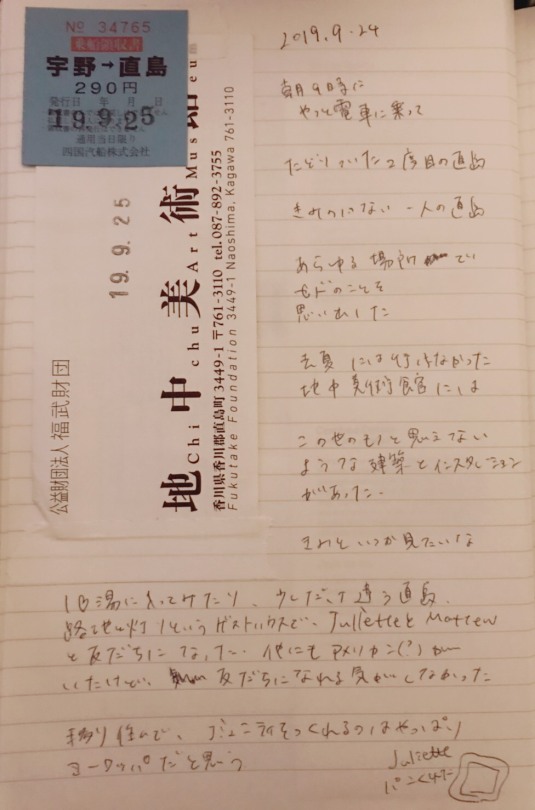 № 34765
乗船領収書
宇野→直島
290円
発行日 年 月 日
19.9.25
通用当日限り
四国汽船株式会社
19.9.25
公益財団法人 福武財団
地中美術館
Chichu Art Museum
香川県香川郡直島町3449-1 〒761-3110 tel.087-892-3755
Fukutake Foundation 3449-1 Naoshima, Kagawa 761-3110
2019.9.24
朝9時に
やっと電車に乗って
たどりついた2度目の直島
きみのいない一人の直島
あらゆる場所で
のことを
思い出した
去夏には行けなかった
地中美術館には
この世のものと思えない
ような建築とインスタレーション
があった.
きみといつか見たいな
I♥湯に入ってみたり、少しだけ違う直島.
路地と灯りというゲストハウスで、JulietteとMattew
と友だちになった. 他にもアメリカン(?)が
いたけど、友だちになれる気がしなかった
移り住んで、コミュニティをつくれるのはやっぱり
ヨーロッパだと思う
Juliette